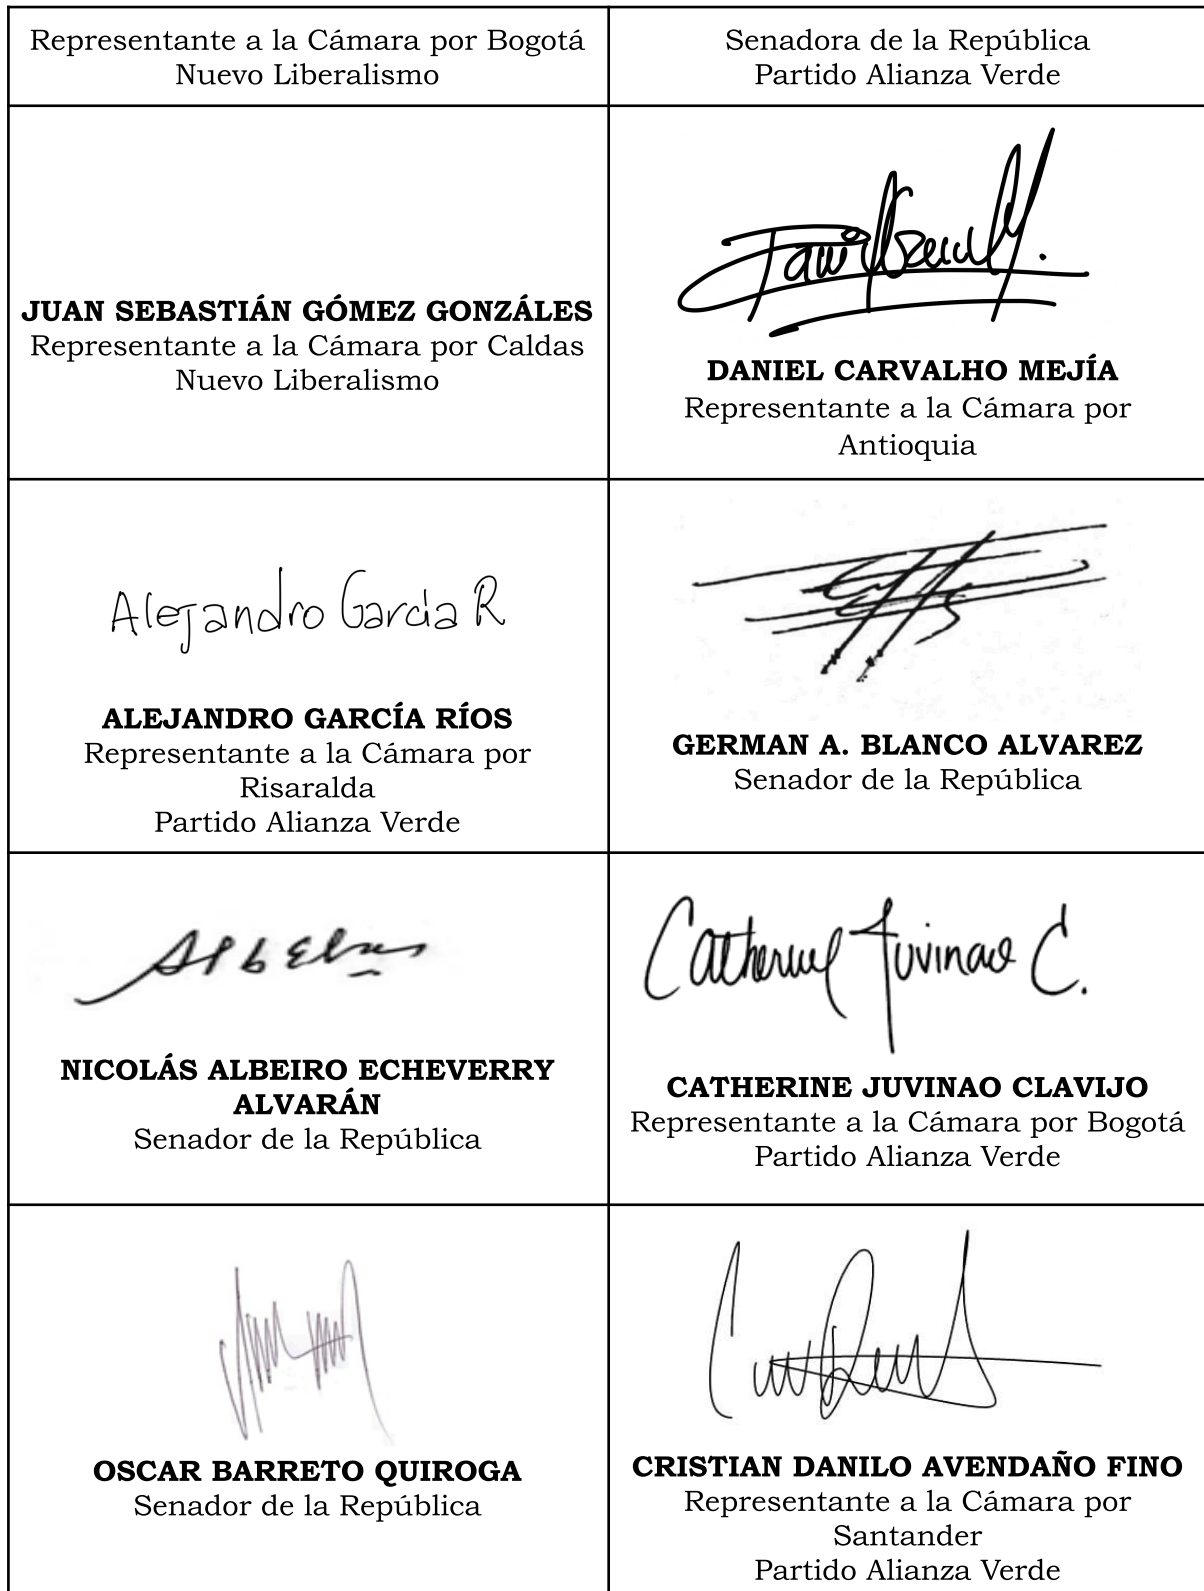 Representante a la Cámara por Bogotá
Nuevo Liberalismo
Senadora de la República
Partido Alianza Verde
JUAN SEBASTIÁN GÓMEZ GONZÁLES
Representante a la Cámara por Caldas
Nuevo Liberalismo
DANIEL CARVALHO MEJÍA
Representante a la Cámara por
Antioquia
Alejandro Garcia R
ALEJANDRO GARCÍA RÍOS
Representante a la Cámara por
Risaralda
Partido Alianza Verde
GERMAN A. BLANCO ALVAREZ
Senador de la República
NICOLÁS ALBEIRO ECHEVERRY
ALVARÁN
Senador de la República
Catherine Juvinao C.
CATHERINE JUVINAO CLAVIJO
Representante a la Cámara por Bogotá
Partido Alianza Verde
OSCAR BARRETO QUIROGA
Senador de la República
CRISTIAN DANILO AVENDAÑO FINO
Representante a la Cámara por
Santander
Partido Alianza Verde